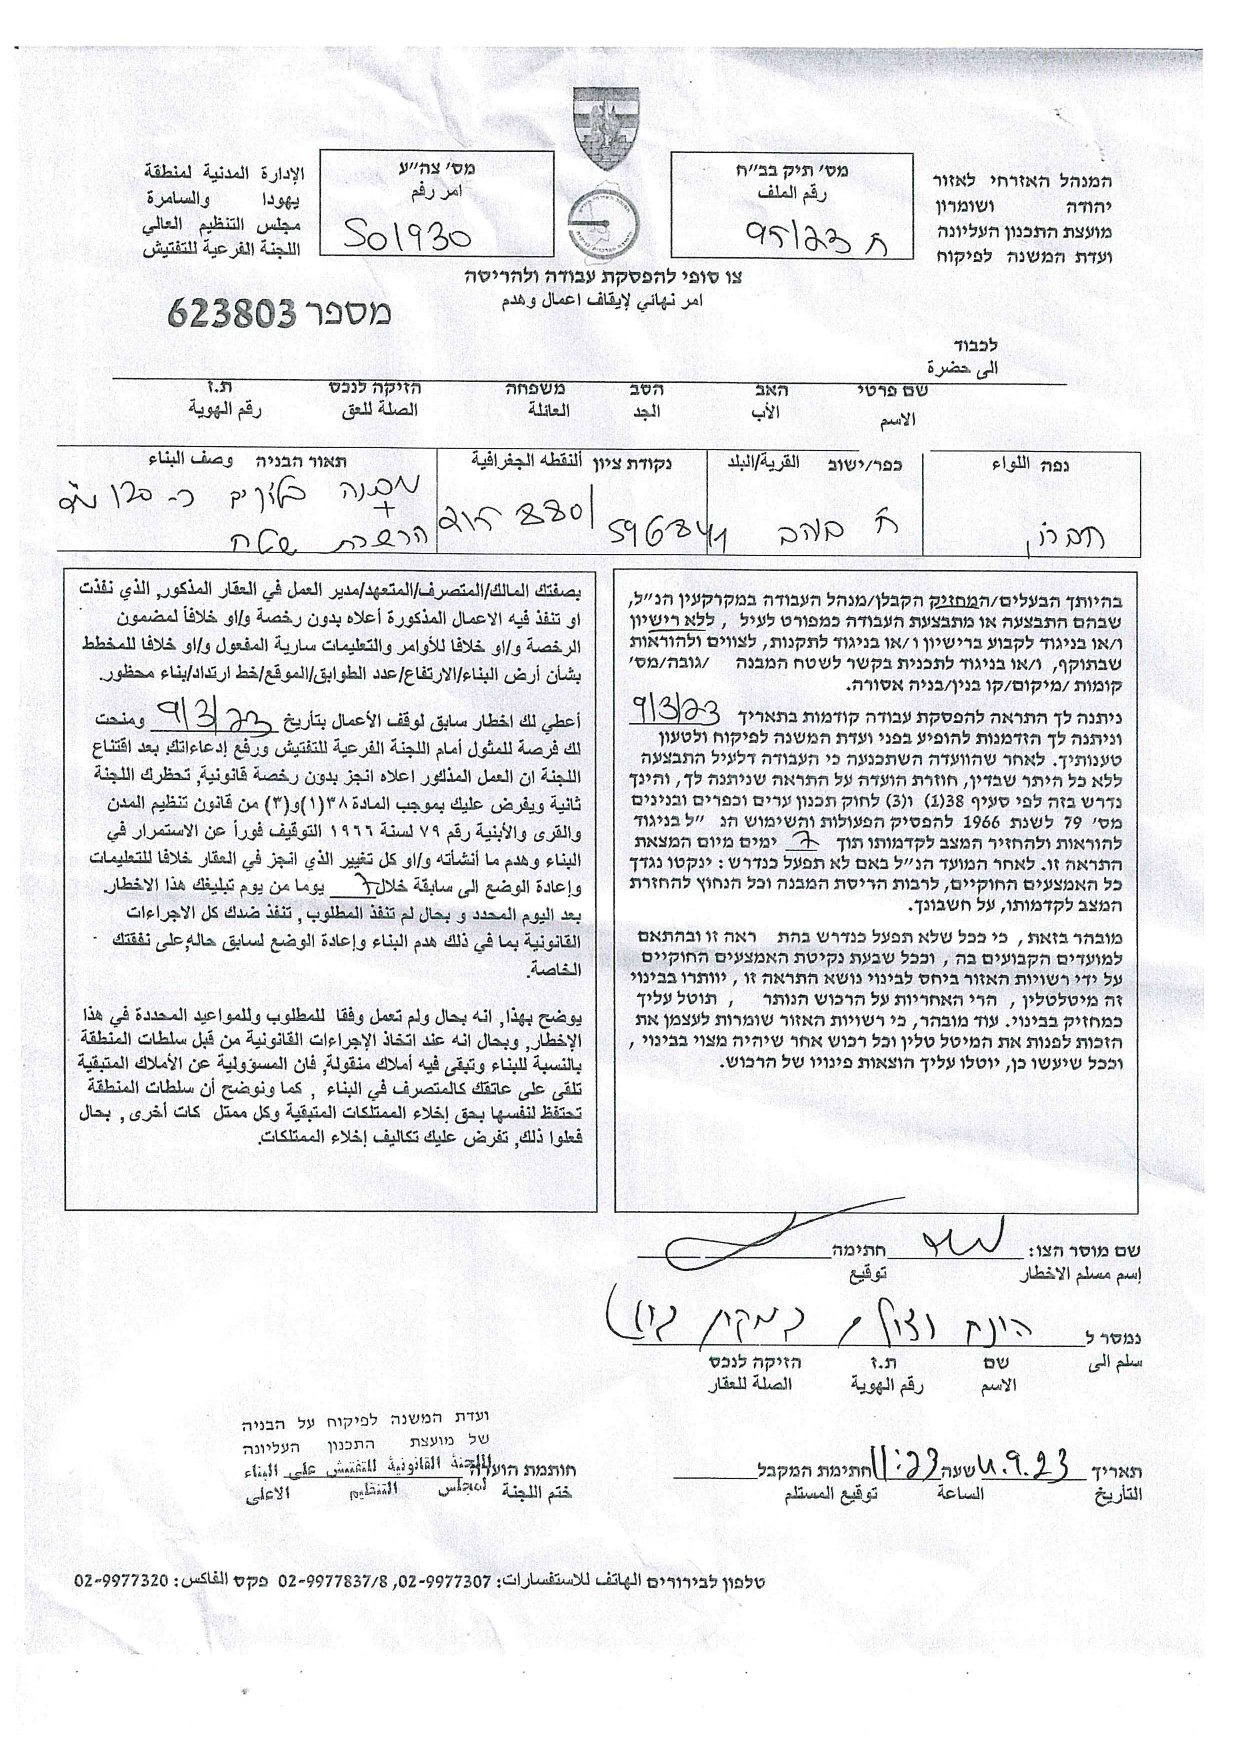 המנהל האזרחי לאזור
יהודה ושומרון
מועצת התכנון העליונה
ועדת המשנה לפיקוח
מס׳ תיק בב״ח
رقم الملف
ח 95/23
מס׳ צה״ע
امر رقم
50/930
الإدارة المدنية لمنطقة
يهودا والسامرة
مجلس التنظيم العالي
اللجنة الفرعية للتفتيش
צו סופי להפסקת עבודה ולהריסה
امر نهائي لإيقاف اعمال وهدم
מספר 623803
לכבוד
الى حضرة
שם פרטי האב הסב משפחה הזיקה לנכס ת.ז
الاسم الأب الجد العائلة الصلة للعق رقم الهوية
נפה اللواء
חברון
כפר/ישוב القرية/البلد
ח׳
נקודת ציון النقطه الجغرافية
596841
תאור הבניה وصف البناء
מבנה בלוקים כ- 120 מ״ר
+
הכשרת שטח
בהיותך הבעלים/המחזיק הקבלן/מנהל העבודה במקרקעין הנ״ל,
שבהם התבצעה או מתבצעת העבודה כמפורט לעיל , ללא רישיון
ו/או בניגוד לקבוע ברישיון ו/או בניגוד לתקנות, לצווים ולהוראות
שבתוקף, ו/או בניגוד לתכנית בקשר לשטח המבנה /גובה/מס׳
קומות /מיקום/קו בנין/בניה אסורה.
ניתנה לך התראה להפסקת עבודה קודמות בתאריך 9/3/23
וניתנה לך הזדמנות להופיע בפני ועדת המשנה לפיקוח ולטעון
טענותיך. לאחר שהוועדה השתכנעה כי העבודה דלעיל התבצעה
ללא כל היתר שבדין, חוזרת הועדה על התראה שניתנה לך, והינך
נדרש בזה לפי סעיף 38(1) ו(3) לחוק תכנון ערים וכפרים ובנינים
מס׳ 79 לשנת 1966 להפסיק הפעולות והשימוש הנ ״ל בניגוד
להוראות ולהחזיר המצב לקדמותו תוך 7 ימים מיום המצאת
התראה זו. לאחר המועד הנ״ל באם לא תפעל כנדרש : ינקטו נגדך
כל האמצעים החוקיים, לרבות הריסת המבנה וכל הנחוץ להחזרת
המצב לקדמותו, על חשבונך.
מובהר בזאת , כי ככל שלא תפעל כנדרש בהת ראה זו ובהתאם
למועדים הקבועים בה , וככל שבעת נקיטת האמצעים החוקיים
על ידי רשויות האזור ביחס לבינוי נושא התראה זו , יוותרו בבינוי
זה מיטלטלין , הרי האחריות על הרכוש הנותר , תוטל עליך
כמחזיק בבינוי. עוד מובהר, כי רשויות האזור שומרות לעצמן את
הזכות לפנות את המיטל טלין וכל רכוש אחר שיהיה מצוי בבינוי ,
וככל שיעשו כן, יוטלו עליך הוצאות פינויו של הרכוש.
بصفتك المالك/المتصرف/المتعهد/مدير العمل في العقار المذكور, الذي نفذت
او تنفذ فيه الاعمال المذكورة أعلاه بدون رخصة و/او خلافاً لمضمون
الرخصة و/او خلافا للأوامر والتعليمات سارية المفعول و/او خلافا للمخطط
بشأن أرض البناء/الارتفاع/عدد الطوابق/الموقع/خط ارتداد/بناء محظور.
أعطي لك اخطار سابق لوقف الأعمال بتأريخ 9/3/23 ومنحت
لك فرصة للمثول أمام اللجنة الفرعية للتفتيش ورفع إدعاءاتك, بعد اقتناع
اللجنة ان العمل المذكور اعلاه انجز بدون رخصة قانونية, تحظرك اللجنة
ثانية ويفرض عليك بموجب المادة ٣٨(١)و(٣) من قانون تنظيم المدن
والقرى والأبنية رقم ٧٩ لسنة ١٩٦٦ التوقيف فوراً عن الاستمرار في
البناء وهدم ما أنشأته و/او كل تغيير الذي انجز في العقار خلافا للتعليمات
وإعادة الوضع الى سابقة خلال 7 يوما من يوم تبليغك هذا الاخطار.
بعد اليوم المحدد و بحال لم تنفذ المطلوب , تنفذ ضدك كل الاجراءات
القانونية بما في ذلك هدم البناء وإعادة الوضع لسابق حاله, على نفقتك
الخاصة.
يوضح بهذا, انه بحال ولم تعمل وفقا للمطلوب وللمواعيد المحددة في هذا
الإخطار, وبحال انه عند اتخاذ الإجراءات القانونية من قبل سلطات المنطقة
بالنسبة للبناء وتبقى فيه أملاك منقولة, فان المسؤولية عن الأملاك المتبقية
تلقى على عاتقك كالمتصرف في البناء , كما ونوضح أن سلطات المنطقة
تحتفظ لنفسها بحق إخلاء الممتلكات المتبقية وكل ممتل كات أخرى , بحال
فعلوا ذلك, تفرض عليك تكاليف إخلاء الممتلكات.
שם מוסר הצו: חתימה
إسم مسلم الاخطار توقيع
נמסר ל הונח וצולם במקום
سلم الى
שם ת.ז הזיקה לנכס
الاسم رقم الهوية الصلة للعقار
תאריך 4.9.23 שעה 11:23 חתימת המקבל
التأريخ الساعة توقيع المستلم
חותמת הועדה
ختم اللجنة
ועדת המשנה לפיקוח על הבניה
של מועצת התכנון העליונה
اللجنة القانونية للتفتيش على البناء
لمجلس التنظيم الاعلى
טלפון לבירורים الهاتف للاستفسارات: 02-9977307, 02-9977837/8 פקס الفاكس: 02-9977320